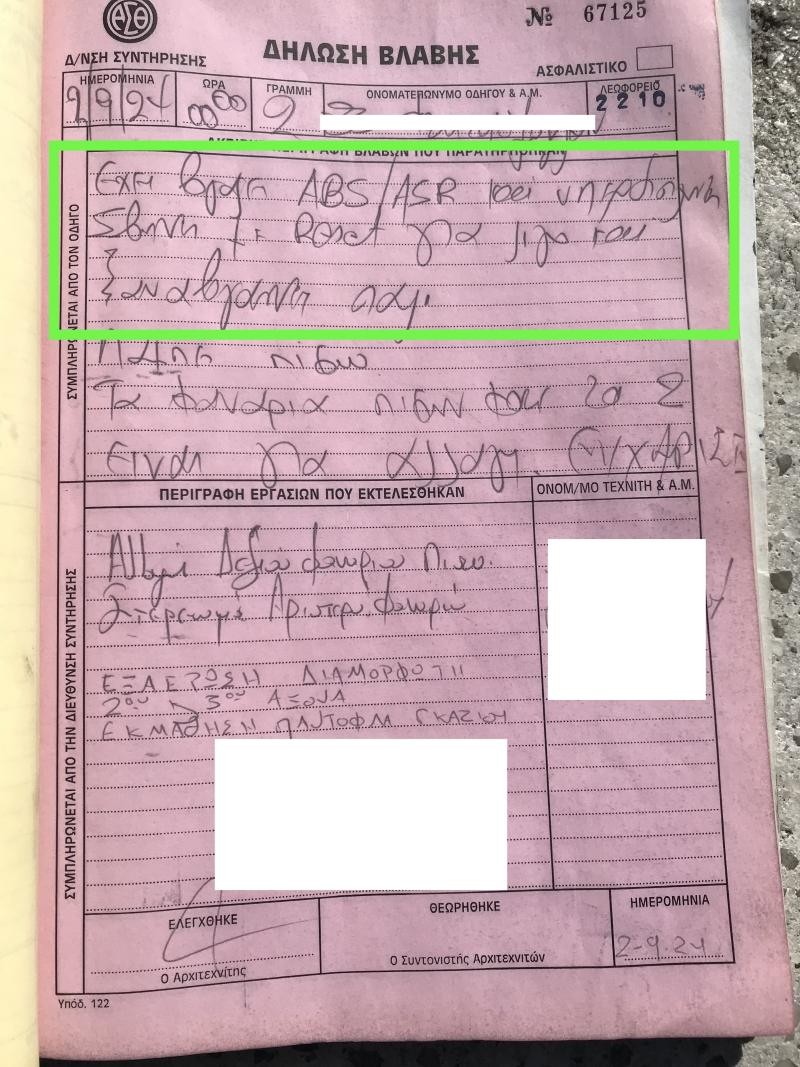 ΟΑΣΘ
№ 67125
Δ/ΝΣΗ ΣΥΝΤΗΡΗΣΗΣ
ΔΗΛΩΣΗ ΒΛΑΒΗΣ
ΑΣΦΑΛΙΣΤΙΚΟ
ΗΜΕΡΟΜΗΝΙΑ ΩΡΑ ΓΡΑΜΜΗ ΟΝΟΜΑΤΕΠΩΝΥΜΟ ΟΔΗΓΟΥ & Α.Μ. ΛΕΩΦΟΡΕΙΟ
2/9/24 00 00 2 2210
ΠΕΡΙΓΡΑΦΗ ΒΛΑΒΩΝ ΠΟΥ ΠΑΡΑΤΗΡΗΘΗΚΑΝ
ΣΥΜΠΛΗΡΩΝΕΤΑΙ ΑΠΟ ΤΟΝ ΟΔΗΓΟ
Εχει βγαλει ABS/ASR και
Σβηνη με Reset για λιγο και
ξαναβγαινη παλι
πισω
Τα φαναρια πισω και τα 2
ειναι για αλλαγη. ΕΥΧΑΡΙΣΤ
ΠΕΡΙΓΡΑΦΗ ΕΡΓΑΣΙΩΝ ΠΟΥ ΕΚΤΕΛΕΣΘΗΚΑΝ ΟΝΟΜ/ΜΟ ΤΕΧΝΙΤΗ & Α.Μ.
ΣΥΜΠΛΗΡΩΝΕΤΑΙ ΑΠΟ ΤΗΝ ΔΙΕΥΘΥΝΣΗ ΣΥΝΤΗΡΗΣΗΣ
Αλλαγή Δεξιού φαναριού Πισω.
Στερεωμα Αριστερού φαναριού
ΕΞΑΕΡΩΣΗ ΔΙΑΜΟΡΦΩΤΗ
2ου 3ου ΑΞΟΝΑ
ΕΚΜΑΘΗΣΗ ΠΑΝΤΟΦΛΑ ΓΚΑΖΙΟΥ
ΕΛΕΓΧΘΗΚΕ ΘΕΩΡΗΘΗΚΕ ΗΜΕΡΟΜΗΝΙΑ
2-9-24
Ο Αρχιτεχνίτης Ο Συντονιστής Αρχιτεχνιτών
Υπόδ. 122